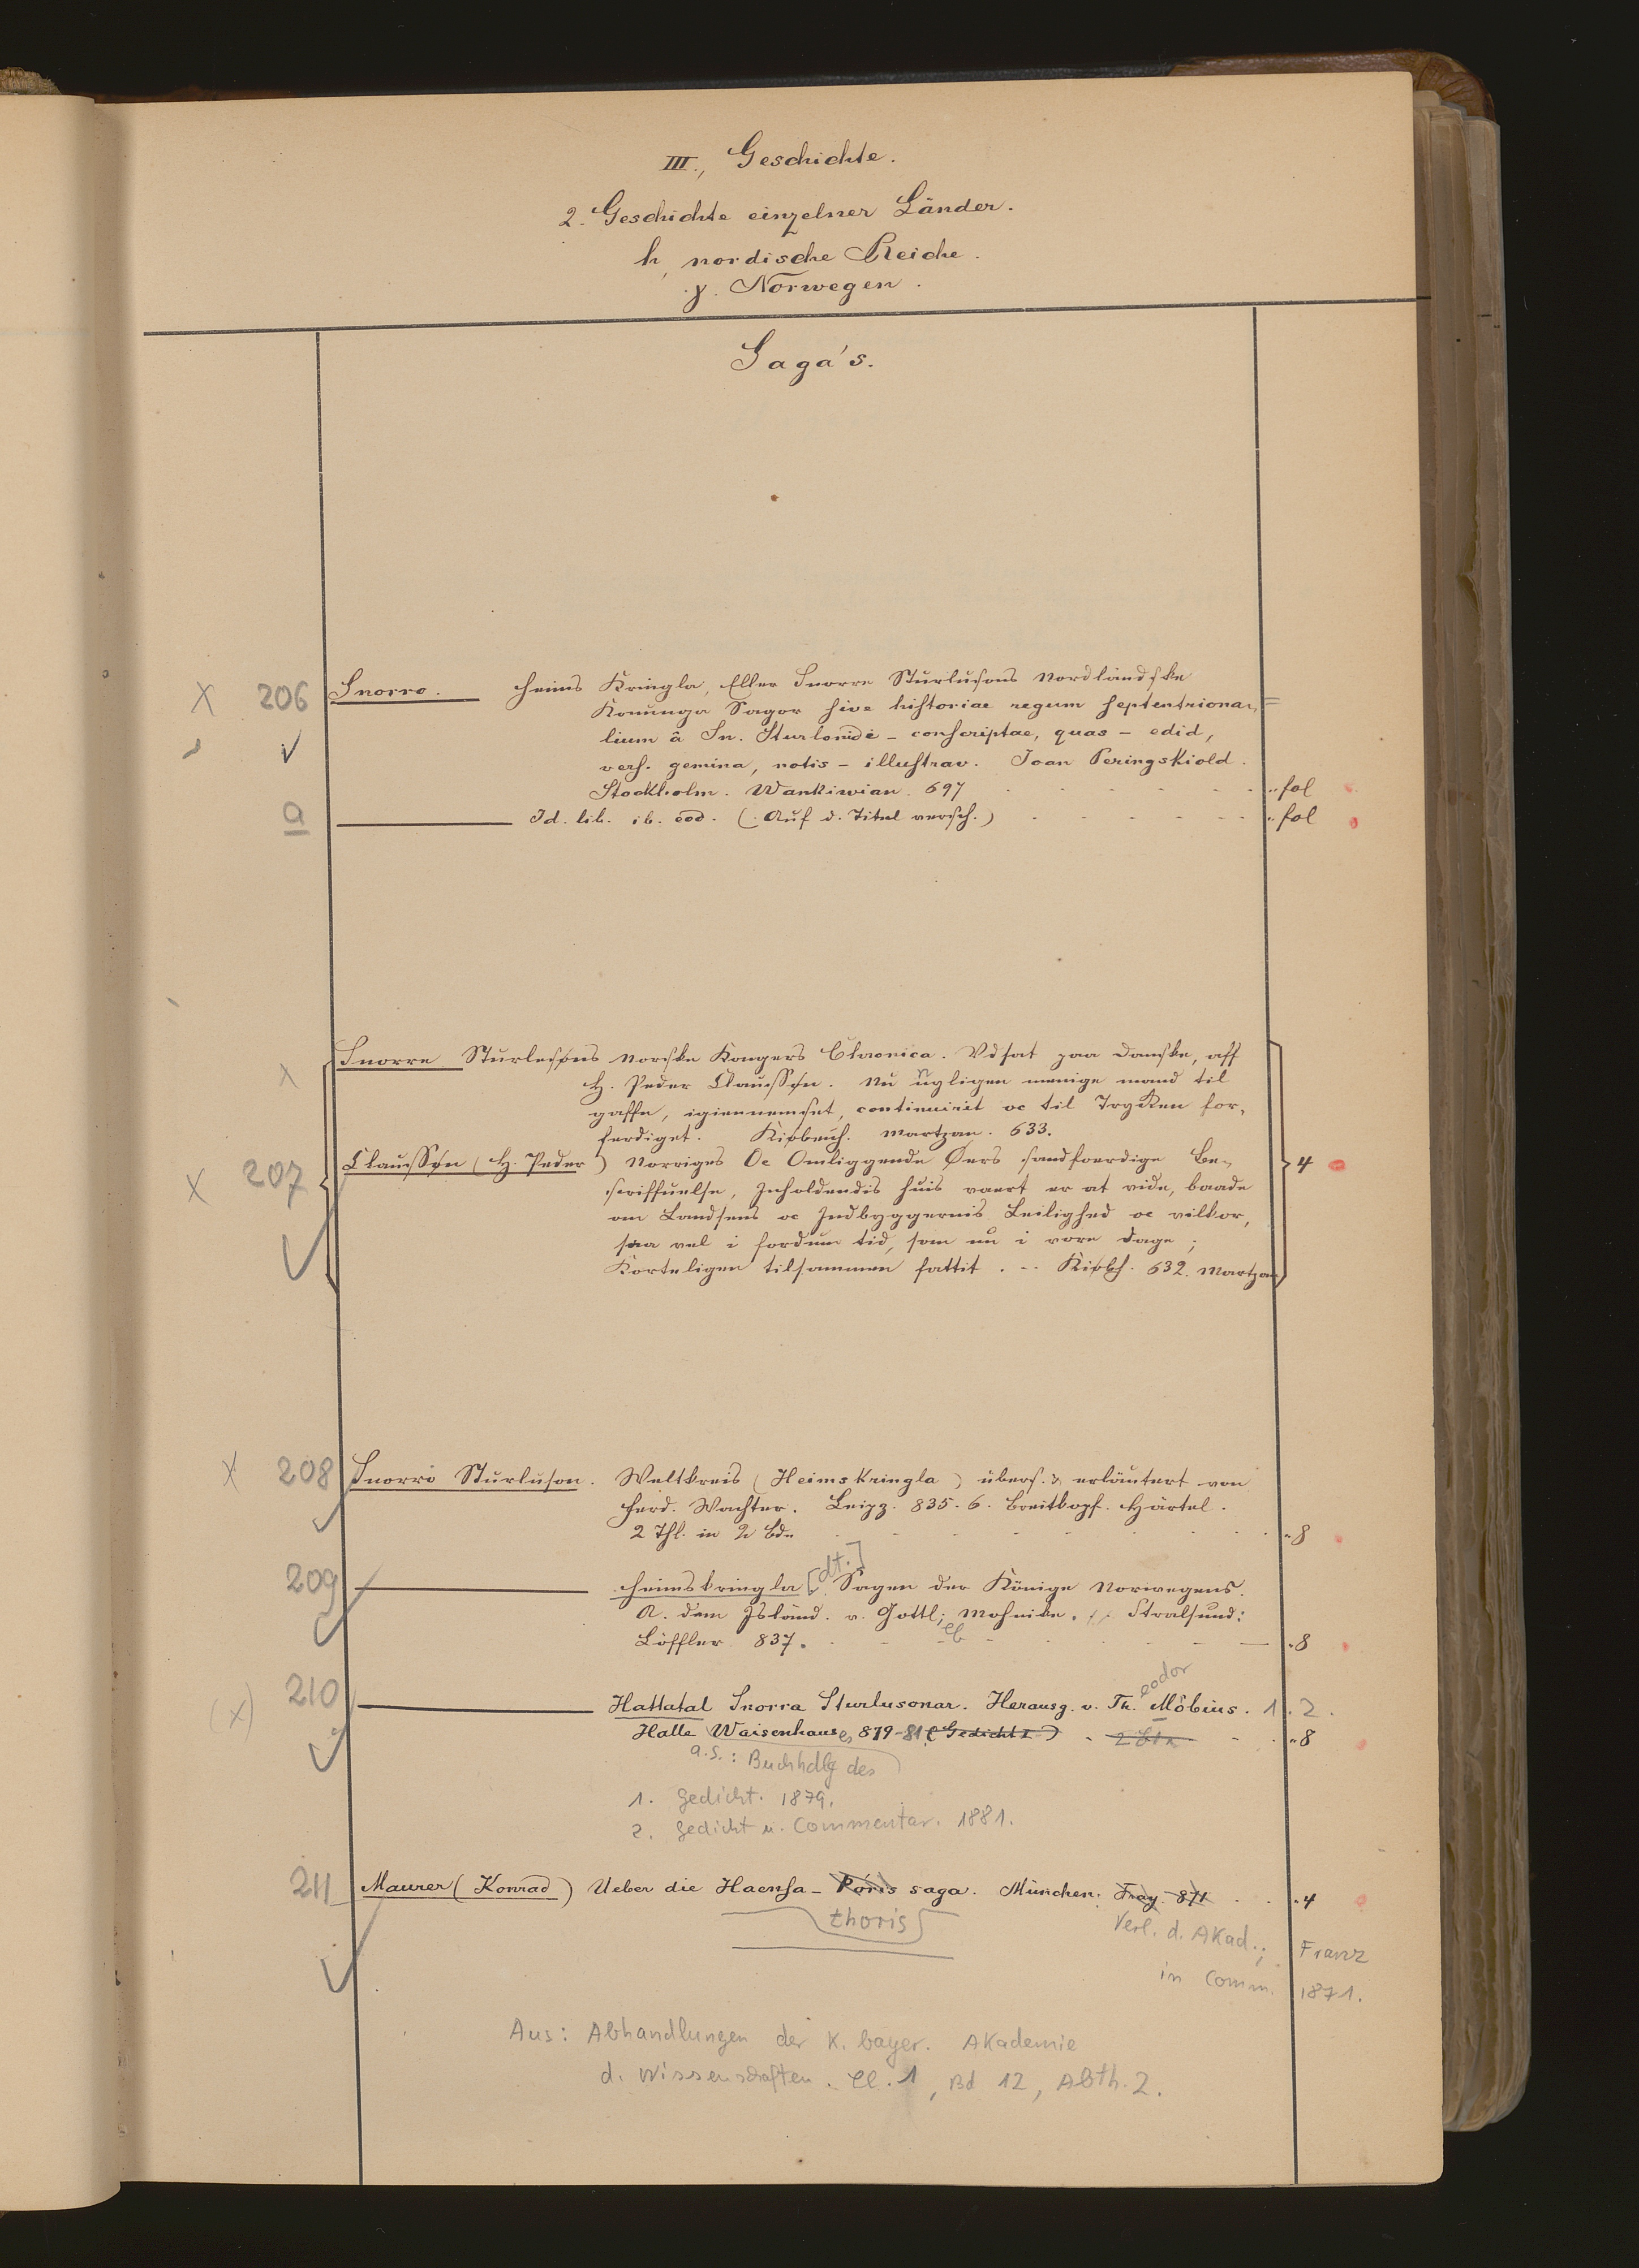 III., Geschichte.
2. Geschichte einzelner Länder.
h, nordische Reiche.
γ. Norwegen.
Saga's.
X 206 Snorro. Heims Kringla, Eller Snorre Sturlusons Nordlandske
Konunga Sagor sive historiae regum septentriona-
lium â Sn. Sturlonide – conscriptae, quas – edid,
vers. gemina, notis – illustrav. Joan Peringskiold.
Stockholm. Wankiwian. 697 fol
a Id. lib. ib. eod. (Auf d. Titel versch.) fol
Snorre Sturlesøns Norske Kongers Chronica. Vdsat paa Danske, aff
H. Peder Claussøn. Nu nyligen menige mand til
gaffn, igiennemset, continuirit oc til Trykken for-
ferdiget. Kiøbenh. Martzan. 633.
X 207 Claussøn (H. Peder) Norriges Oc Omliggende Øers sandfoerdige Be-
scriffuelse, Inholdendis huis vaert er at vide, baade
om Landsens oc Indbyggernis Leilighed oc vilkor,
saa vel i fordum tid, som nu i vore Dage;
Korteligen tilsammen fattit. Kiøbh. 632. Martzan 4
X 208 Snorri Sturluson. Weltkreis (Heimskringla) übers. & erläutert von
Ferd. Wachter. Leipz. 835. 6. Breitkopf. Härtel.
2 Thl. in 2 Bdn 8
209 Heimskringla [dt.] Sagen der Könige Norwegens.
A. dem Island. v. Gottl; Mohnike. Stralsund:
Löffler 837. 8
eb
210 (x) Hattatal Snorra Sturlusonar. Herausg. v. Th.eodor Möbius. 1. 2.
Halle Waisenhauses 879-81 (Gedicht I) 2 Bdn 8
a.S.: Buchhdlg des
1. Gedicht. 1879.
2. Gedicht u. Commentar. 1881.
211 Maurer (Konrad) Ueber die Haensa-Þóris saga. München: Fray. 871 4
thoris
Verl. d. Akad.; Franz
in Comm. 1871.
Aus: Abhandlungen der K. bayer. Akademie
d. Wissenschaften. Cl. 1, Bd 12, Abth. 2.